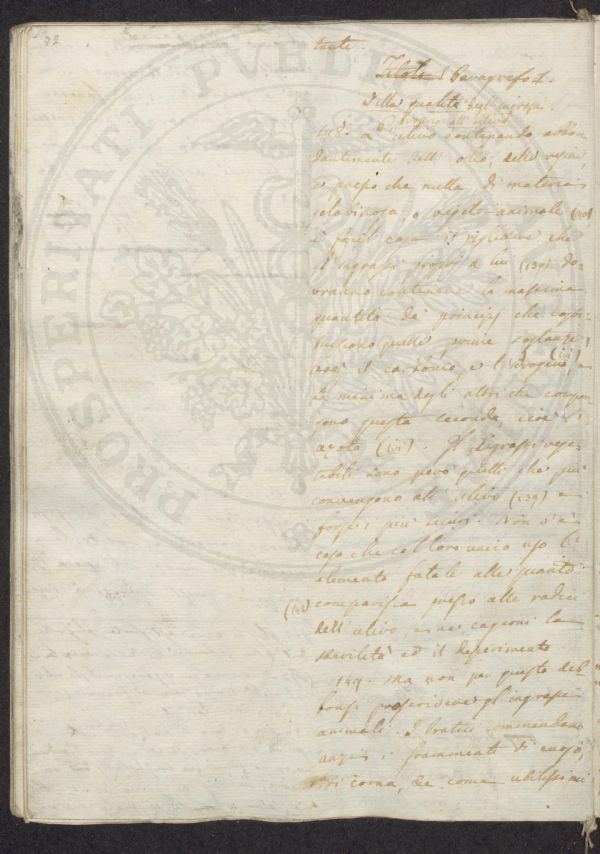 92
tanti.
Paragrafo 4.
Della qualità degl' ingrassi
all' ulivo
148. L' ulivo contenendo abbon
dantemente dell' olio, delle resine,
e presso che nulla di materia
gelatinosa, o vegeto-animale (140)
è facil cosa il riflettere che
gl' ingrassi proprj a lui (139) do-
vranno contenere la massima
quantità de' principj che costi-
tuiscono quelle prime sostanze,
cioè il carbonio e l' idrogeno, e
la minima degli altri che compon
gono questa seconda cioè l'
azoto (ivi). Gl' ingrassi vege-
tabili sono però quelli che più
convengono all' ulivo (139) e
forse i più sicuri. Non v' è
caso che col loro uso l'
elemento fatale alle piante
(142) comparisca presso alle radici
dell' ulivo, e ne cagioni la
sterilità ed il deperimento
149. Ma non per questo deb-
bonsi proscrivere gl' ingrassi
animali. I Pratici commendano
anzi i frammenti di cuojo,
di corna, come utilissimi
PROSPERITATI PVBLIC